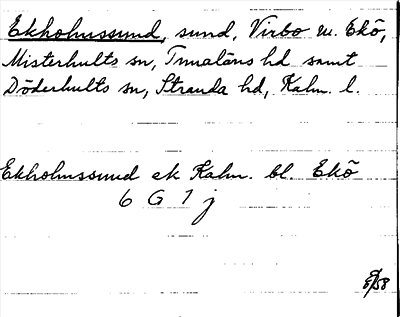 Ekholmssund, sund, Virbo m. Ekö,
Misterhults sn, Tunaläns hd samt
Döderhults sn, Stranda hd, Kalm. l.
Ekholmssund ek Kalm. bl. Ekö
6 G 7 j